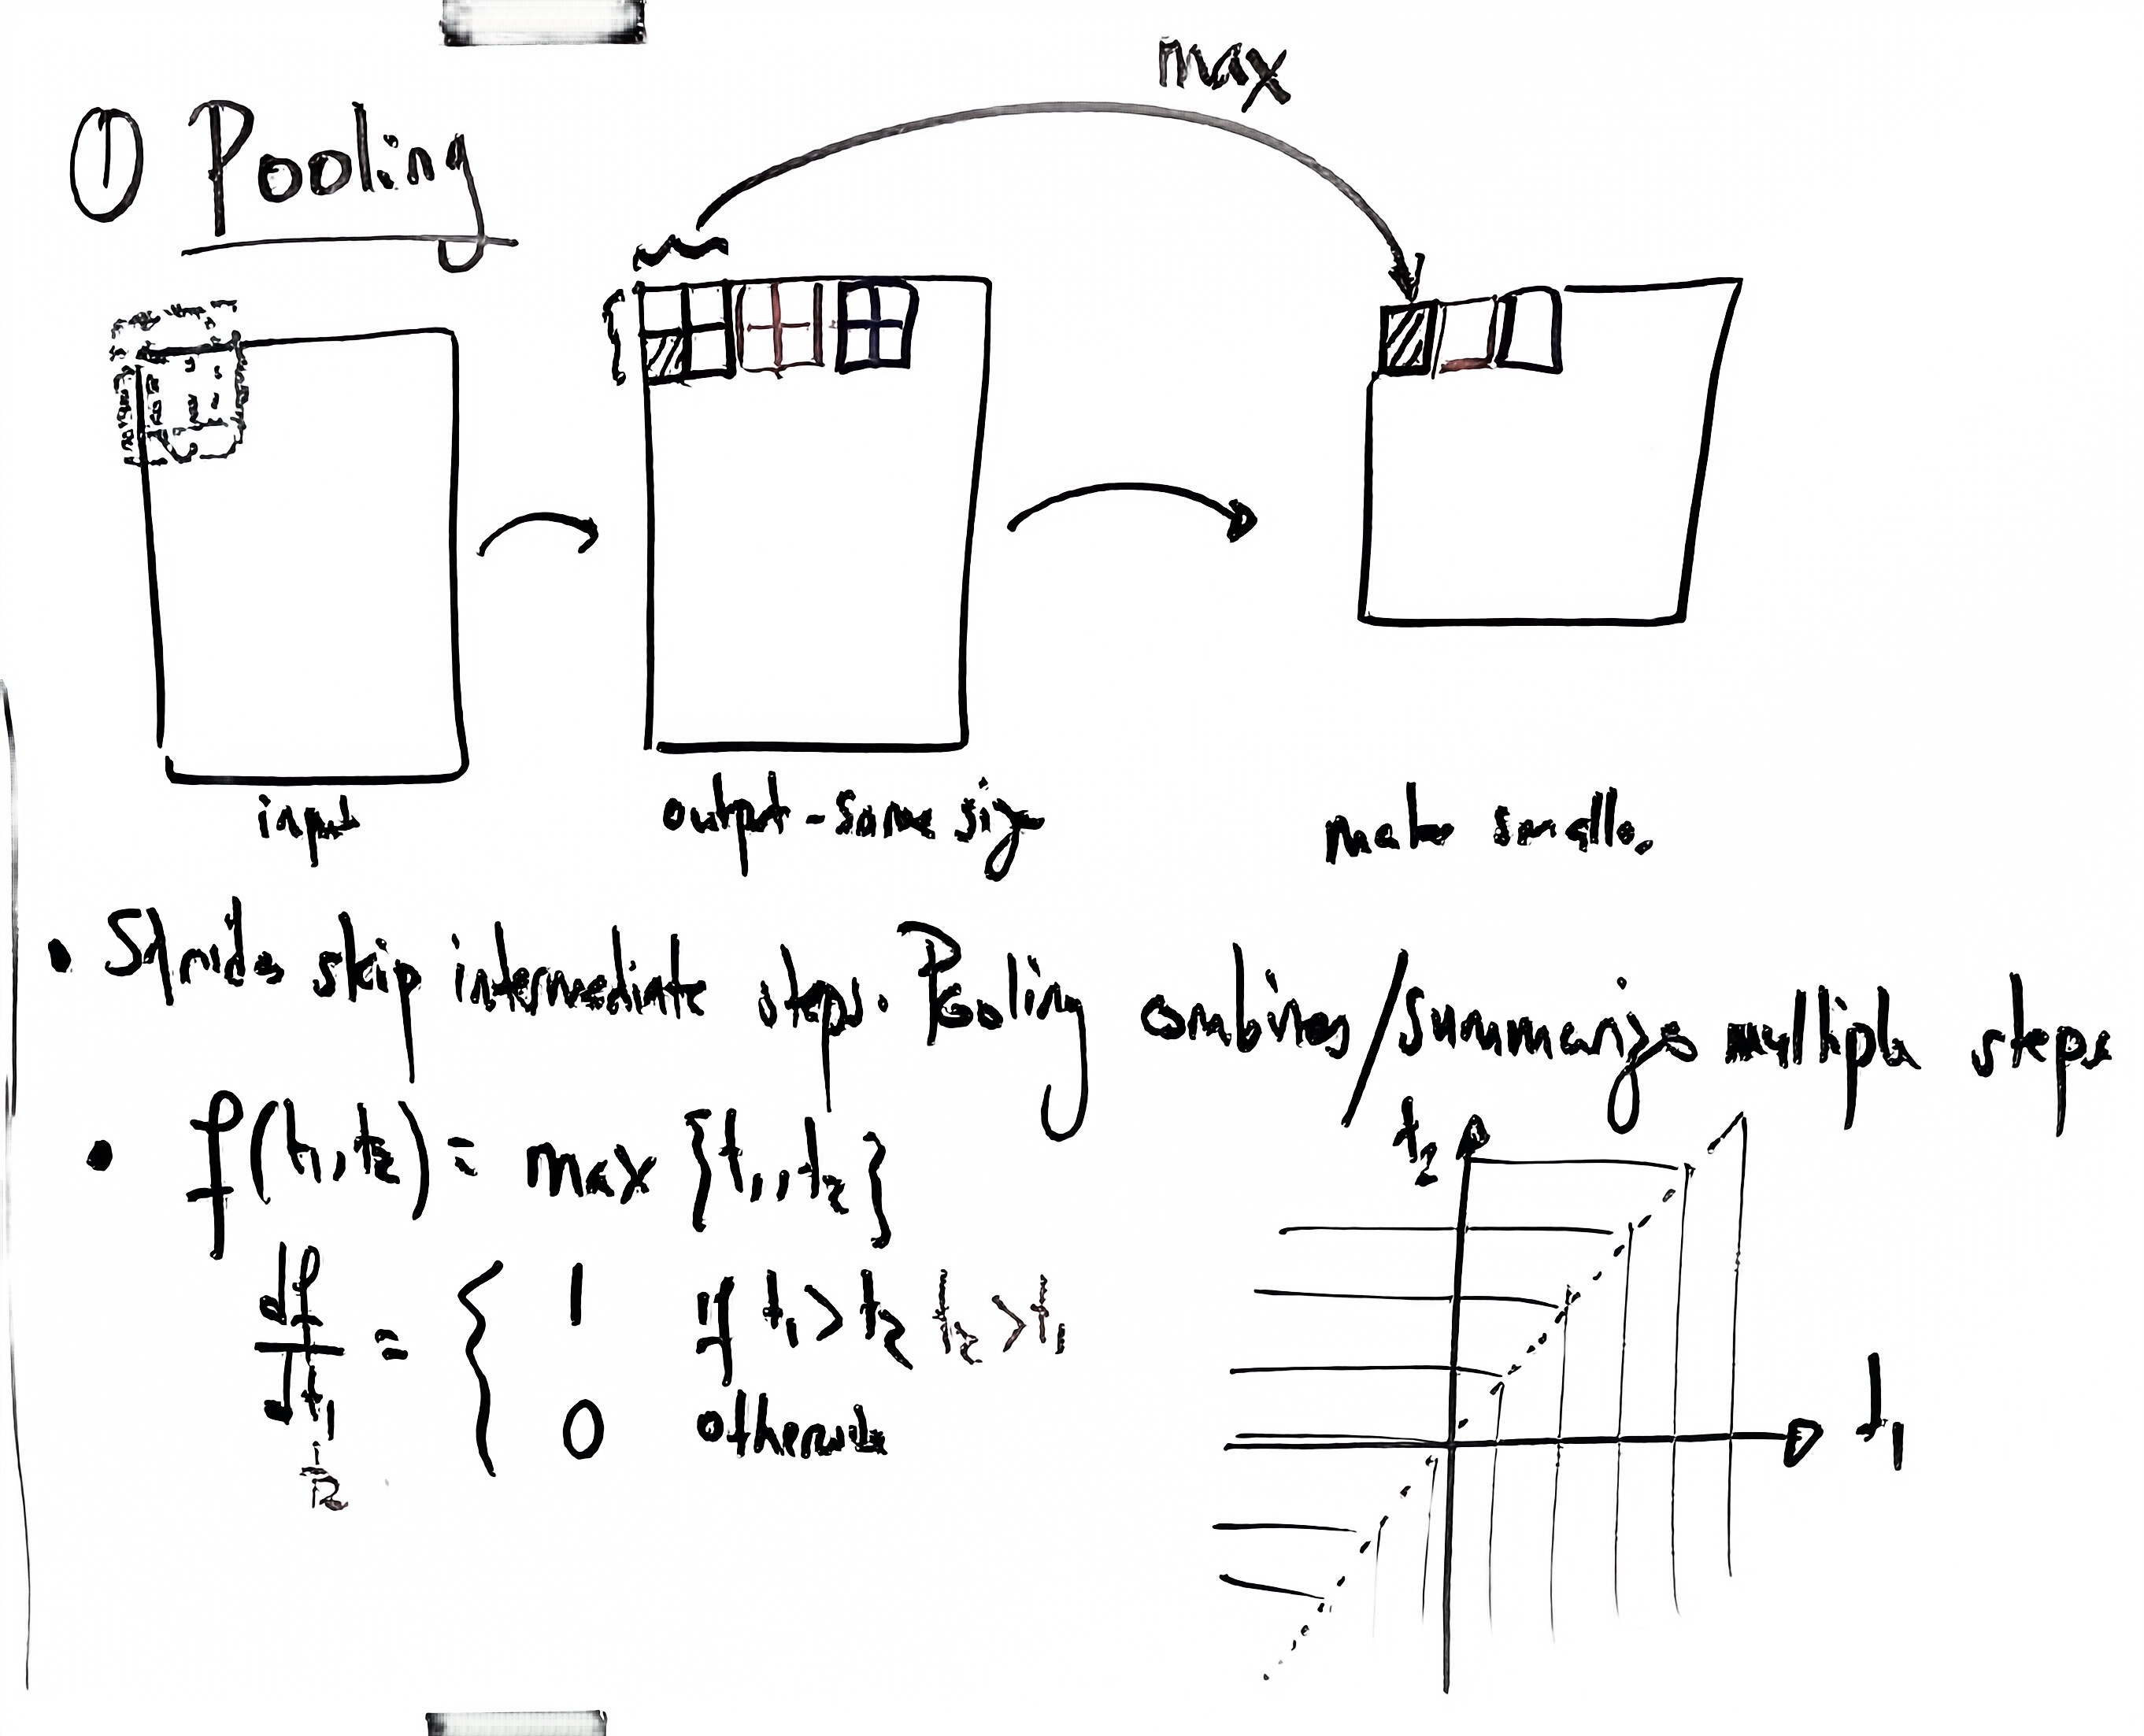 max
① Pooling
input
output - same size
make smaller
• Strides skip intermediate steps. Pooling combines/summarizes multiple steps
• f(t₁,t₂) = max {t₁,t₂}
df/dt₁ = { 1 if t₁>t₂ t₂>t₁
0 otherwise
t₂
t₁